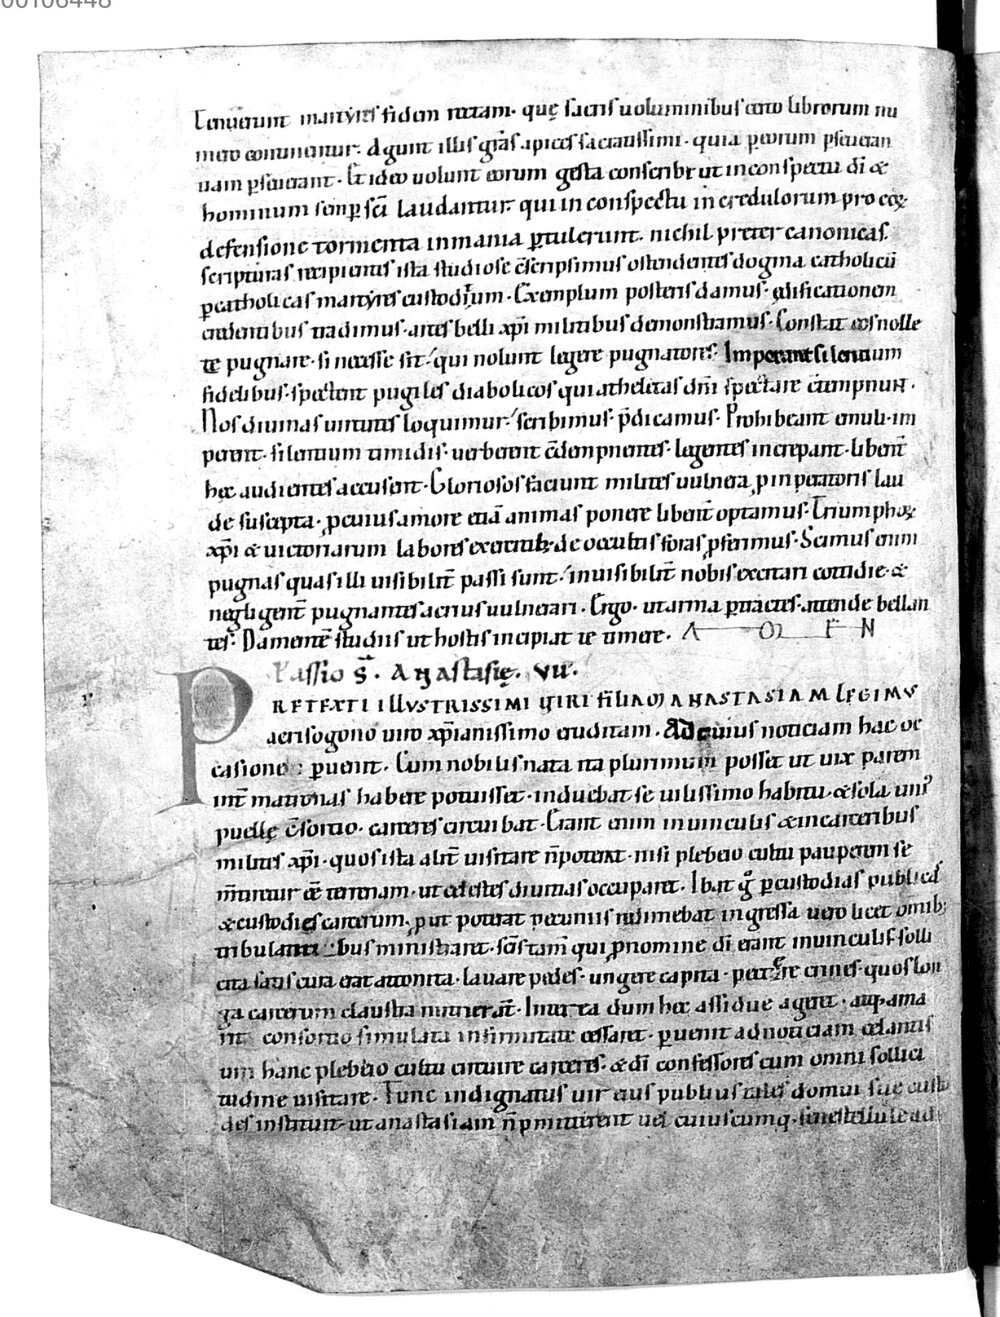 00106448
martyres fidem rectam. quę sacris uoluminibus cano librorum nu
mero continentur. Agunt illis grãs apices sacratissimi. quia
uam pseuerant. Et ideo uolunt eorum gesta conscribi ut in conspectu dĩ &
hominum semp scĩ laudantur. qui in conspectu incredulorum pro eoꝝ
defensione tormenta inmania ptulerunt. nichil preter canonicas
scripturas recipientes ista studiose c̃scripsimus ostendentes dogma catholicũ
p catholicas martyres custoditum. Exemplum posteris damus. ędificationem
credentibus tradimus. artes belli xp̃i militibus demonstramus. Constat eos nolle
te pugnare. si necesse sit. qui nolunt legere pugnatores. Imperant silentium
fidelibus. spectent pugiles diabolicos qui athletas dñi spectare c̃tempnunt.
Nos diuinas uirtutes loquimur. scribimus. p̃dicamus. Prohibeant emuli. im
perent. silentium timidis. uerberent c̃dempnentes. legentes increpant. libent̃
hęc audientes accusent. Gloriosos faciunt milites uulnera, p inperatoris lau
de suscepta. p cuius amore etiã animas ponere libent̃ optamus. Triumphoꝝ
xp̃i & uictoriarum labores de occultis foras pferimus. Scimus enim
pugnas quas illi uisibilit̃ passi sunt. inuisibilit̃ nobis excitari cottidie. &
neglegent̃ pugnantes acrius uulnerari. Ergo. ut arma ptractes. attende bellan
tes. Da mente studiis ut hostis incipiat te timere. A M E N
Passio S̃. Anastasię. VII.
PRETEXTI ILLVSTRISSIMI VIRI FILIAM ANASTASIAM LEGIMVS
a crisogono uiro xp̃ianissimo eruditam. Ad cuius noticiam hac oc
casione puenit. Cum nobilis nata ita plurimum posset ut uix parem
int̃ matronas habere potuisset. induebat se uilissimo habitu. & sola uni'
puellę c̃sortio. carceres circuibat. Erant enim in uinculis & in carceribus
milites xp̃i. quos ista alit̃ uisitare ñ poterat. nisi plebeio cultu pauperem se
m̃tiretur ẽẽ terrenam. ut cęlestes diuitias occuparet. Ibat g° p custodias publicas
& custodies carcerum, put poterat pecuniis redimebat ingressa uero licet omib;
tribulantibus ministraret. sc̃is tam̃ qui p nomine dĩ erant in uinculis solli
cita satis cura erat attonita. Lauare pedes. ungere capita. pectere crines. quos lon
ga carcerum claustra nutrierant̃. Inter ea dum hęc assidue ageret.
consortio simulata infirmitate cessaret. puenit ad noticiam
um hanc plebeio cultu circuire carceres. & dĩ confessores cum omni sollici
tudine uisitare. Tunc indignatus uir eius publius tales domui suę custo
des instituit. ut anastasiam ñ pmitterent uel cuiuscumq. fenestellule ad